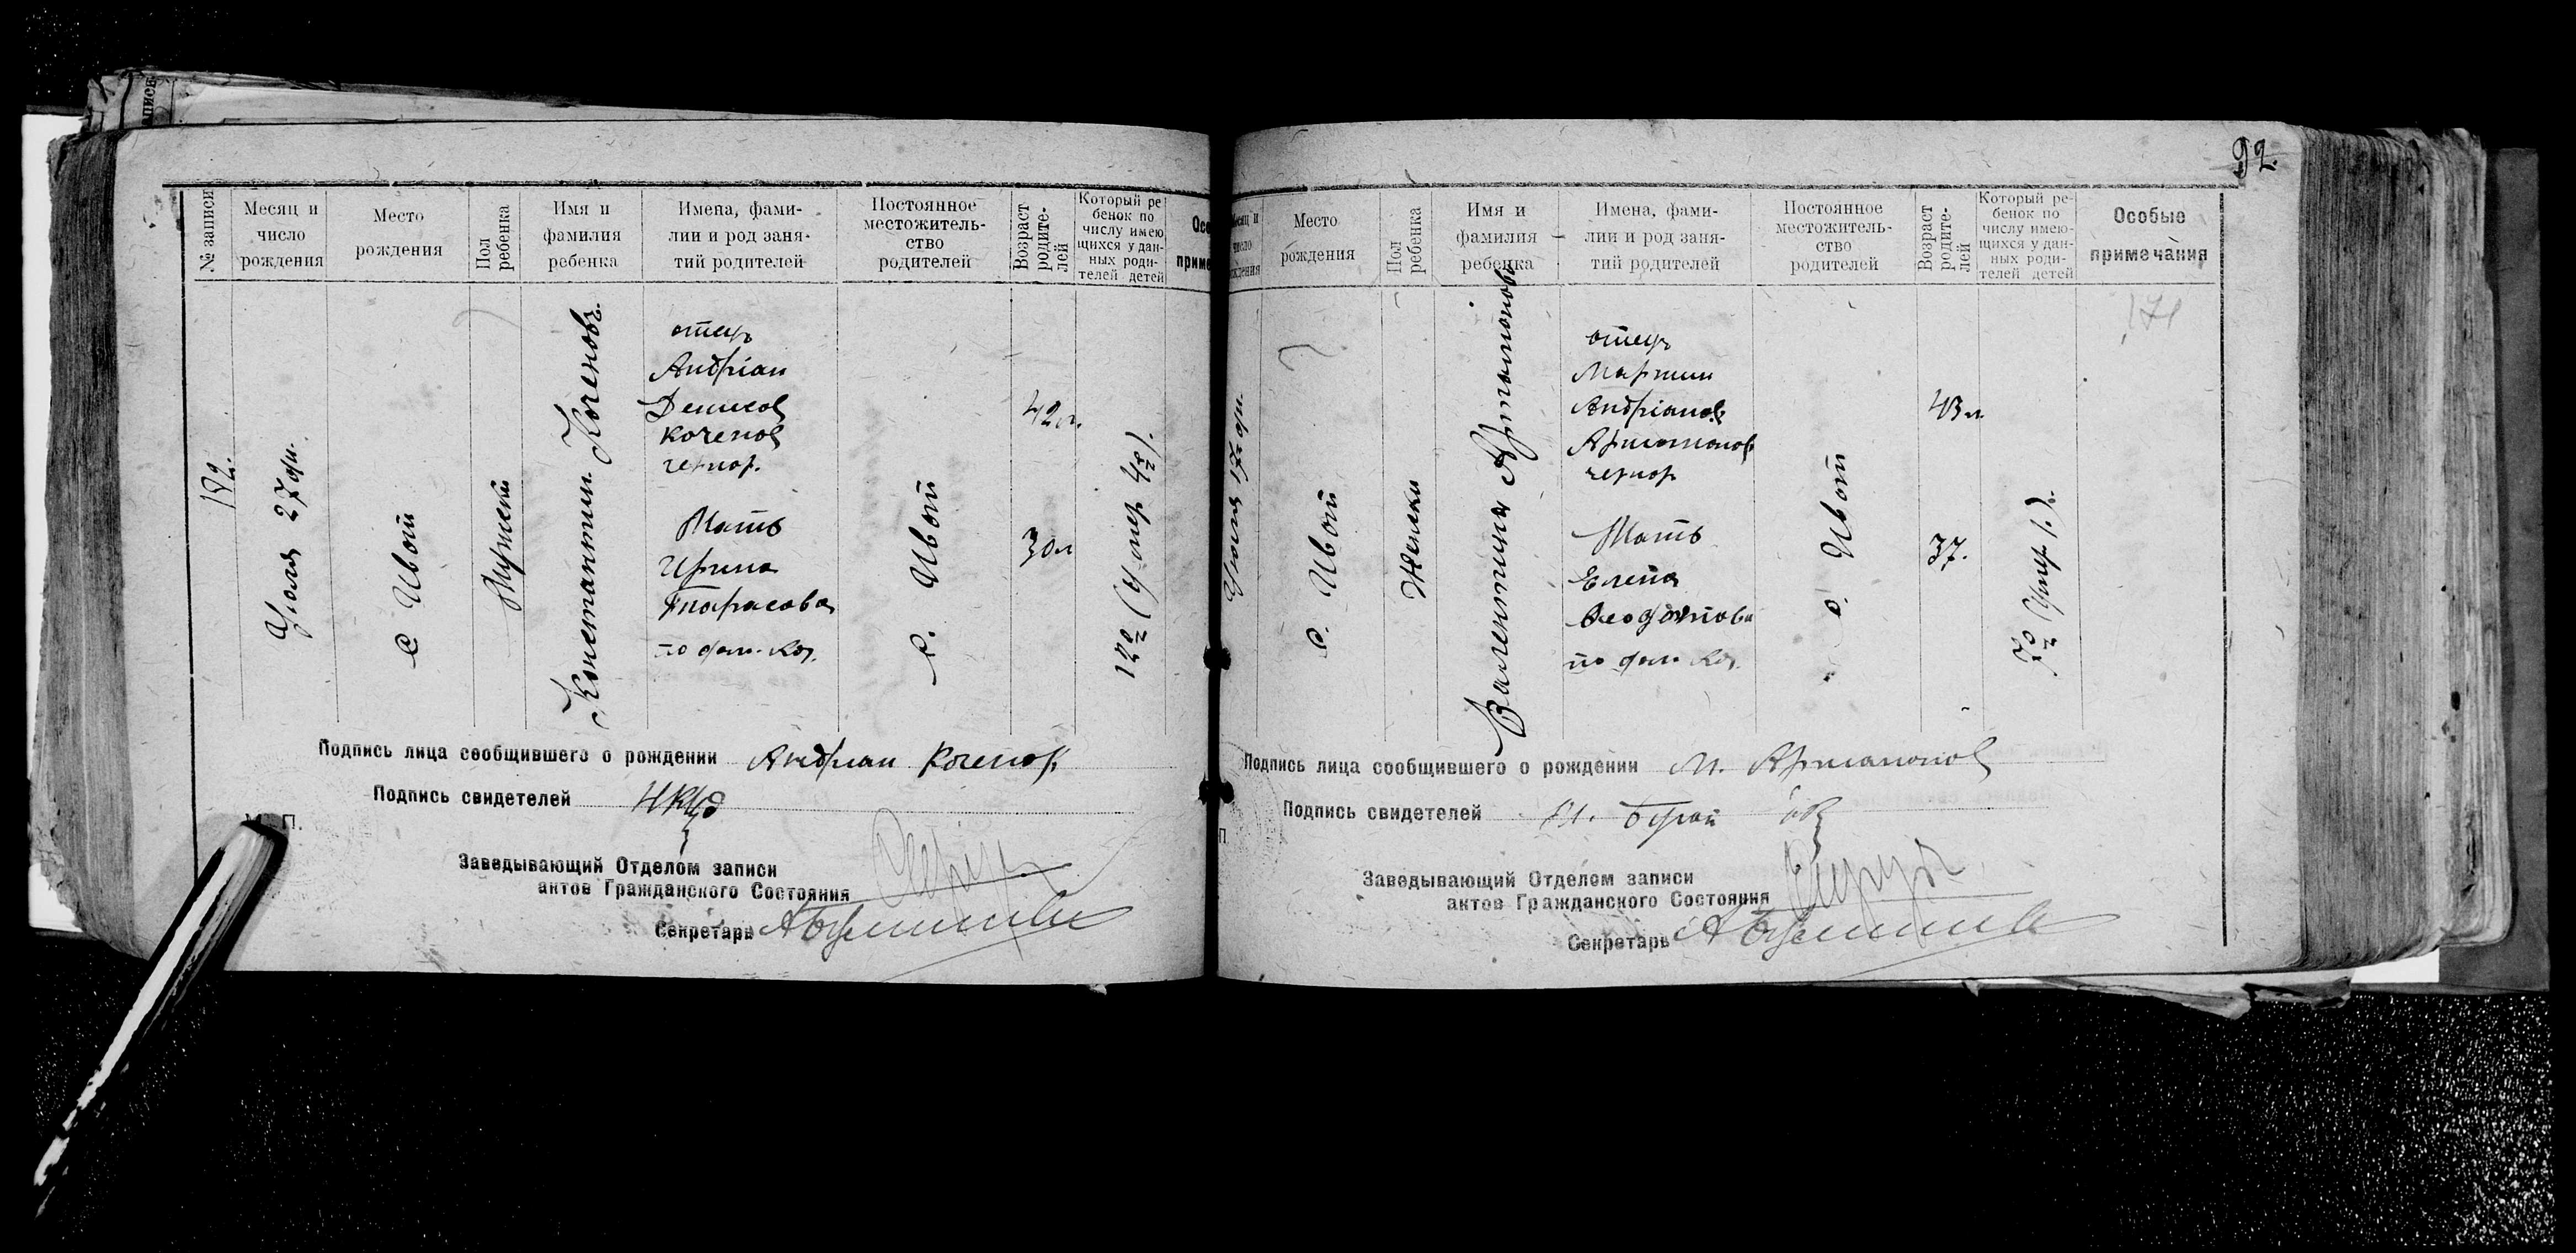 92.
№ записи
Месяц и
число
рождения
Место
рождения
Пол
ребенка
Имя и
фамилия
ребенка
Имена, фами-
лии и род заня-
тий родителей
Постоянное
местожитель-
ство
родителей
Возраст
родите-
лей
Который ре
бенок по
числу имею
щихся у дан-
ных роди-
телей детей
182.
Июля 27 дн.
с Ивот
Мужски
Константин Коченовъ
отец
Андріан
Денисов
Коченов
чернор.
Мать
Ирина
Тарасова
по фам. Коч.
с. Ивот
42 л.
30 л
12й (умер 4й).
Подпись лица сообщившего о рождении Андриан Коченов
Подпись свидетелей
М. П.
Заведывающий Отделом записи
актов Гражданского Состояния
Секретарь
Месяц и
число
рождения
Место
рождения
Пол
ребенка
Имя и
фамилия
ребенка
Имена, фами-
лии и род заня-
тий родителей
Постоянное
местожитель-
ство
родителей
Возраст
родите-
лей
Который ре-
бенок по
числу имею-
щихся у дан-
ных роди-
телей детей
Особые
примечания
171
17 дн.
с. Ивот
Женски
Валентина Артамонова
отец
Мартин
Андріанов
Артамонов
чернор
Мать
Елена
по фам.
с. Ивот
43 л
37.
7й (умер 1.).
Подпись лица сообщившего о рождении М. Артамонов
Подпись свидетелей
Заведывающий Отделом записи
актов Гражданского Состояния
Секретарь